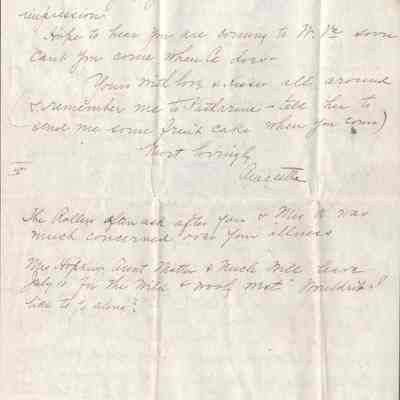 impression
Hope to hear you are coming to W. Va soon
Can't you come when Ce does
Yours with love & kisses all around
& remember me to Katharine - tell her to
send me some fruit cake when you come)
Most lovingly
The Rollers often ask after you & Mrs R was
much concerned over your illness
Mrs Hopkins Aunt Mattie & Uncle Will leave
July 10 for the "Wild & wooly west" Wouldn't I
like to go along?